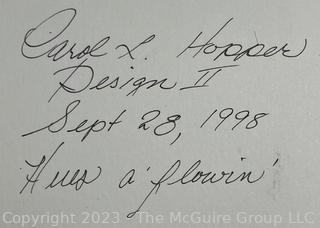 Carol L. Hopper
Design II
Sept 28, 1998
Hues a' flowin'
Copyright 2023 - The McGuire Group LLC